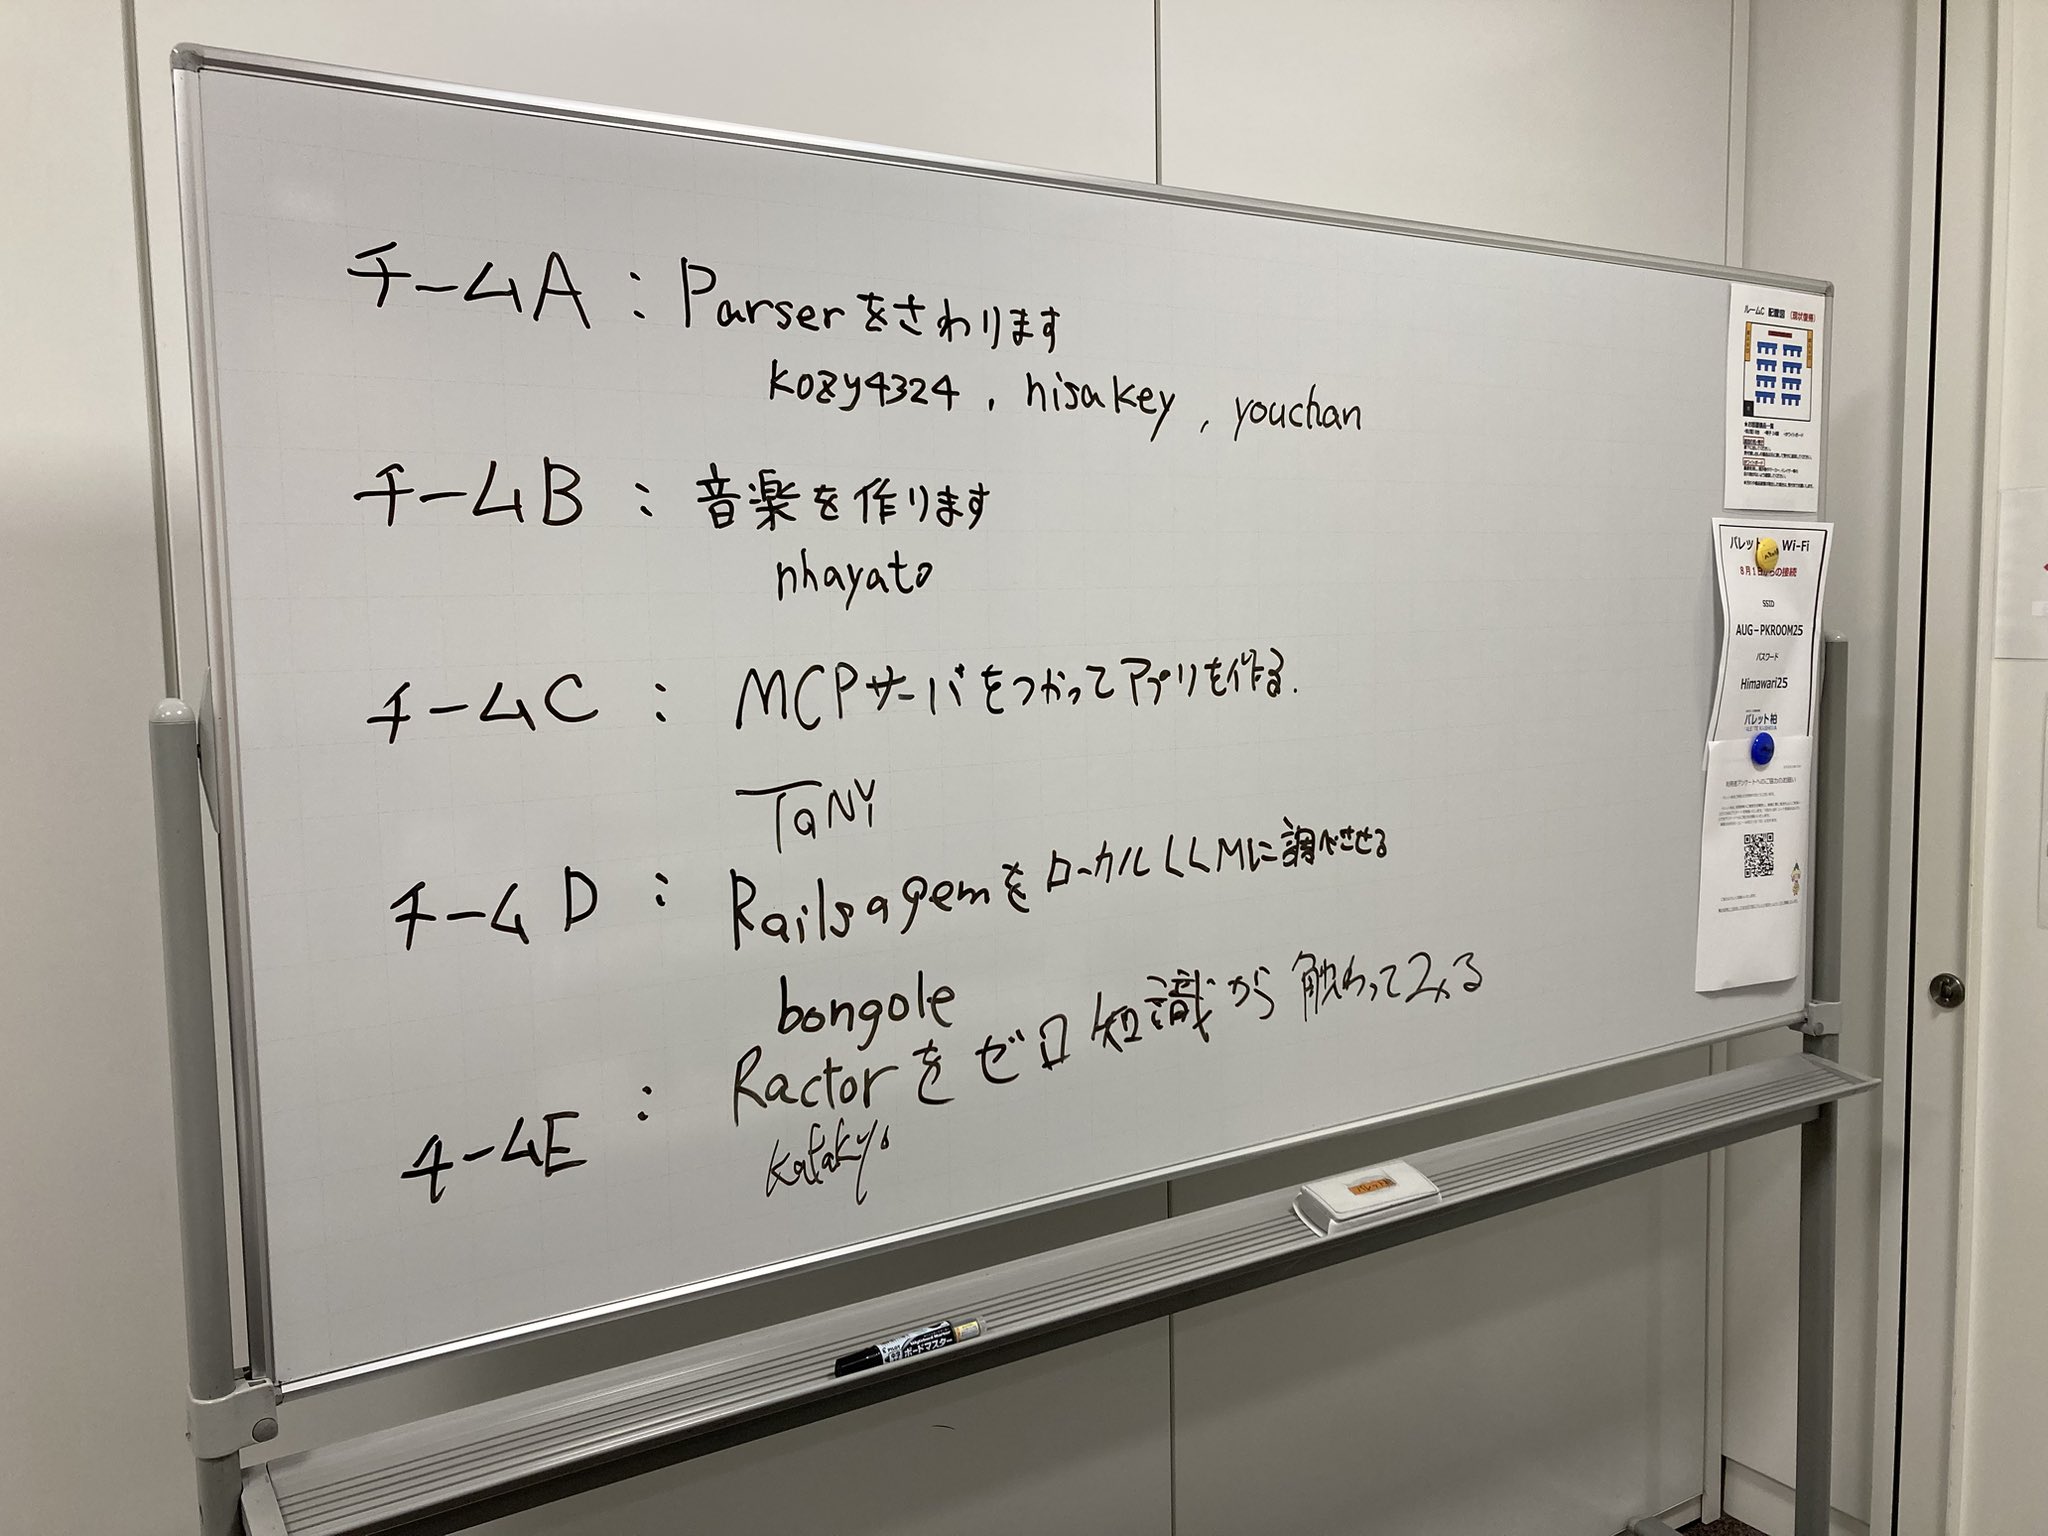 チームA : Parserをさわります
kozy4324 , hisakey , youchan
チームB : 音楽を作ります
nhayato
チームC : MCPサーバをつかってアプリを作る.
TaNY
チームD : Railsのgemを ローカルLLMに調べさせる
bongole
チームE : Ractorを ゼロ知識から触わってみる
katakyo
ルームC 配置図 (現状復帰)
パレット Wi-Fi
8月1日からの接続
SSID
AUG-PKROOM25
パスワード
Himawari25
パレット柏
利用者アンケートへのご協力のお願い
ボードマスター